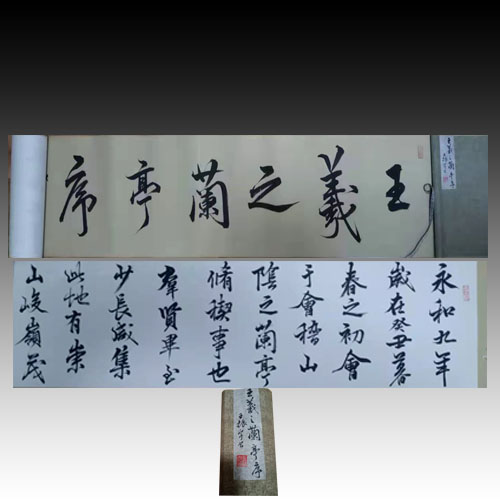 王羲之蘭亭序
王羲之蘭亭序
永和九年
歲在癸丑暮
春之初會
于會稽山
陰之蘭亭
脩禊事也
羣賢畢至
少長咸集
此地有崇
山峻嶺茂
王羲之蘭亭序